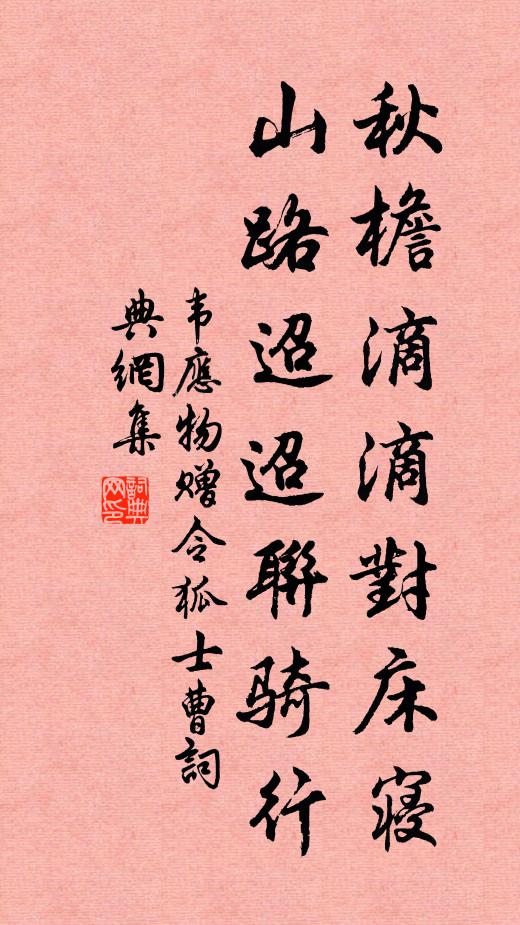 秋檐滴滴對床寝
山路迢迢聯骑行
韦應物赠令狐士曹詞
典網集
詞典网印